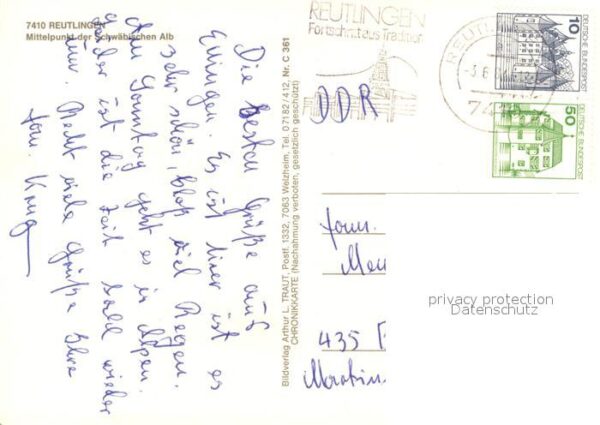 7410 REUTLINGEN
Mittelpunkt der Schwäbischen Alb
Die besten Grüße aus
Eningen. Es ist hier ist es
sehr schön, bloß viel Regen.
Am Sonntag geht es in Alpen.
leider ist die Zeit bald wieder
um. Recht viele Grüße Ihre
Fam. Krug
Bildverlag Arthur L. TRAUT, Postf. 1332, 7063 Welzheim, Tel. 07182/412, Nr. C 361
CHRONIKKARTE (Nachahmung verboten, gesetzlich geschützt)
REUTLINGEN
Fortschritt aus Tradition
REUTL
DEUTSCHE BUNDESPOST
10
DEUTSCHE BUNDESPOST
50
DDR
Fam.
435
privacy protection
Datenschutz